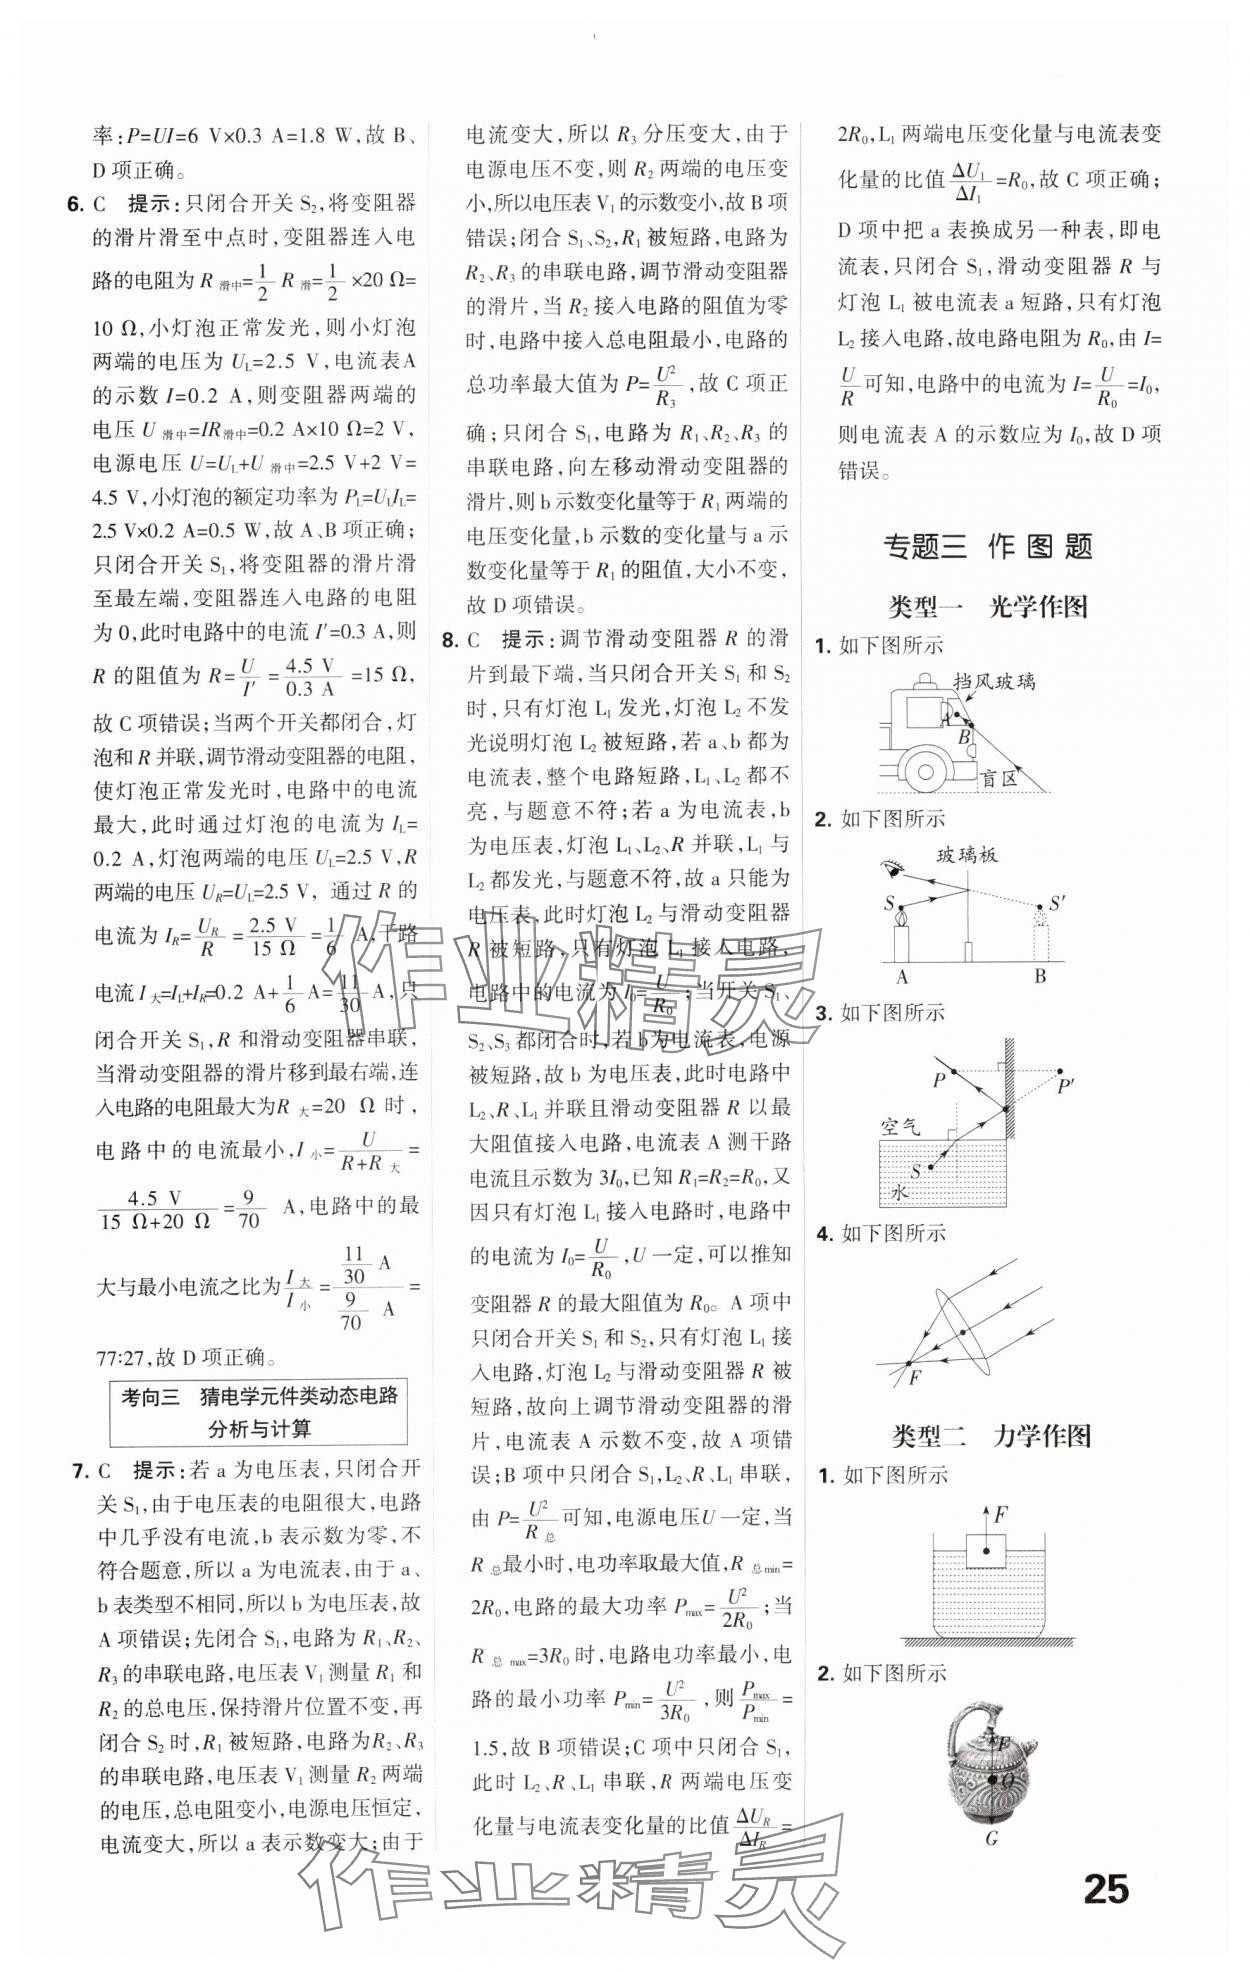 率:P=UI=6 V×0.3 A=1.8 W,故 B、
D 项正确。
6. C 提示:只闭合开关 S₂,将变阻器
的滑片滑至中点时,变阻器连入电
路的电阻为 R 滑中=1/2 R 滑=1/2 ×20 Ω=
10 Ω,小灯泡正常发光,则小灯泡
两端的电压为 U_L=2.5 V,电流表A
的示数 I=0.2 A,则变阻器两端的
电压 U 滑中=IR滑中=0.2 A×10 Ω=2 V,
电源电压 U=U_L+U 滑中=2.5 V+2 V=
4.5 V,小灯泡的额定功率为 P_L=U_LI_L=
2.5 V×0.2 A=0.5 W,故 A、B 项正确;
只闭合开关 S₁,将变阻器的滑片滑
至最左端,变阻器连入电路的电阻
为 0,此时电路中的电流 I′=0.3 A,则
R 的阻值为 R=U/I′=4.5 V/0.3 A=15 Ω,
故 C 项错误;当两个开关都闭合,灯
泡和 R 并联,调节滑动变阻器的电阻,
使灯泡正常发光时,电路中的电流
最大,此时通过灯泡的电流为 I_L=
0.2 A,灯泡两端的电压 U_L=2.5 V,R
两端的电压 U_R=U_L=2.5 V, 通过 R 的
电流为 I_R=U_R/R=2.5 V/15 Ω=1/6 A,干路
电流 I 大=I_L+I_R=0.2 A+1/6 A=11/30 A,只
闭合开关 S₁,R 和滑动变阻器串联,
当滑动变阻器的滑片移到最右端,连
入电路的电阻最大为R 大=20 Ω 时,
电路中的电流最小,I 小=U/(R+R 大)=
4.5 V/(15 Ω+20 Ω)=9/70 A,电路中的最
大与最小电流之比为 I 大/I 小=(11/30 A)/(9/70 A)=
77∶27,故 D 项正确。
考向三 猜电学元件类动态电路
分析与计算
7. C 提示:若 a 为电压表,只闭合开
关 S₁,由于电压表的电阻很大,电路
中几乎没有电流,b 表示数为零,不
符合题意,所以 a 为电流表,由于 a、
b 表类型不相同,所以 b 为电压表,故
A 项错误;先闭合 S₁,电路为 R₁、R₂、
R₃ 的串联电路,电压表 V₁ 测量 R₁ 和
R₂ 的总电压,保持滑片位置不变,再
闭合 S₂ 时,R₁ 被短路,电路为R₂、R₃
的串联电路,电压表 V₁ 测量 R₂ 两端
的电压,总电阻变小,电源电压恒定,
电流变大,所以 a 表示数变大;由于
电流变大,所以 R₃ 分压变大,由于
电源电压不变,则 R₂ 两端的电压变
小,所以电压表 V₁ 的示数变小,故 B 项
错误;闭合 S₁、S₂,R₁ 被短路,电路为
R₂、R₃ 的串联电路,调节滑动变阻器
的滑片,当 R₂ 接入电路的阻值为零
时,电路中接入总电阻最小,电路的
总功率最大值为 P=U²/R₃,故 C 项正
确;只闭合 S₁,电路为 R₁、R₂、R₃ 的
串联电路,向左移动滑动变阻器的
滑片,则 b 示数变化量等于 R₁ 两端的
电压变化量,b 示数的变化量与 a 示
数变化量等于 R₁ 的阻值,大小不变,
故 D 项错误。
8. C 提示:调节滑动变阻器 R 的滑
片到最下端,当只闭合开关 S₁ 和 S₂
时,只有灯泡 L₁ 发光,灯泡 L₂ 不发
光说明灯泡 L₂ 被短路,若 a、b 都为
电流表,整个电路短路,L₁、L₂ 都不
亮,与题意不符;若 a 为电流表,b
为电压表,灯泡 L₁、L₂、R 并联,L₁ 与
L₂ 都发光,与题意不符,故 a 只能为
电压表,此时灯泡 L₂ 与滑动变阻器
R 被短路,只有灯泡 L₁ 接入电路,
电路中的电流为 I₀=U/R₀;当开关 S₁、
S₂、S₃ 都闭合时,若 b为电流表,电源
被短路,故 b 为电压表,此时电路中
L₂、R、L₁ 并联且滑动变阻器 R 以最
大阻值接入电路,电流表 A 测干路
电流且示数为 3I₀,已知 R₁=R₂=R₀,又
因只有灯泡 L₁ 接入电路时,电路中
的电流为 I₀=U/R₀,U 一定,可以推知
变阻器 R 的最大阻值为 R₀。A 项中
只闭合开关 S₁ 和 S₂,只有灯泡 L₁ 接
入电路,灯泡 L₂ 与滑动变阻器 R 被
短路,故向上调节滑动变阻器的滑
片,电流表 A 示数不变,故 A 项错
误;B 项中只闭合 S₁,L₂、R、L₁ 串联,
由 P=U²/R 总可知,电源电压U 一定,当
R 总最小时,电功率取最大值,R 总min=
2R₀,电路的最大功率 Pmax=U²/2R₀;当
R 总 max=3R₀ 时,电路电功率最小,电
路的最小功率 Pmin=U²/3R₀,则Pmax/Pmin=
1.5,故 B 项错误;C 项中只闭合 S₁,
此时 L₂、R、L₁ 串联,R 两端电压变
化量与电流表变化量的比值 ΔU_R/ΔI_R=
2R₀,L₁ 两端电压变化量与电流表变
化量的比值 ΔU₁/ΔI₁=R₀,故 C 项正确;
D 项中把 a 表换成另一种表,即电
流表,只闭合 S₁,滑动变阻器 R 与
灯泡 L₁ 被电流表 a 短路,只有灯泡
L₂ 接入电路,故电路电阻为 R₀,由 I=
U/R可知,电路中的电流为 I=U/R₀=I₀,
则电流表 A 的示数应为 I₀,故 D 项
错误。
专题三 作图题
类型一 光学作图
1. 如下图所示
挡风玻璃
A
B
盲区
2. 如下图所示
玻璃板
S
S′
A
B
3. 如下图所示
P
P′
空气
S
水
4. 如下图所示
F
类型二 力学作图
1. 如下图所示
F
2. 如下图所示
F
O
G
25
作业精灵
作业精灵